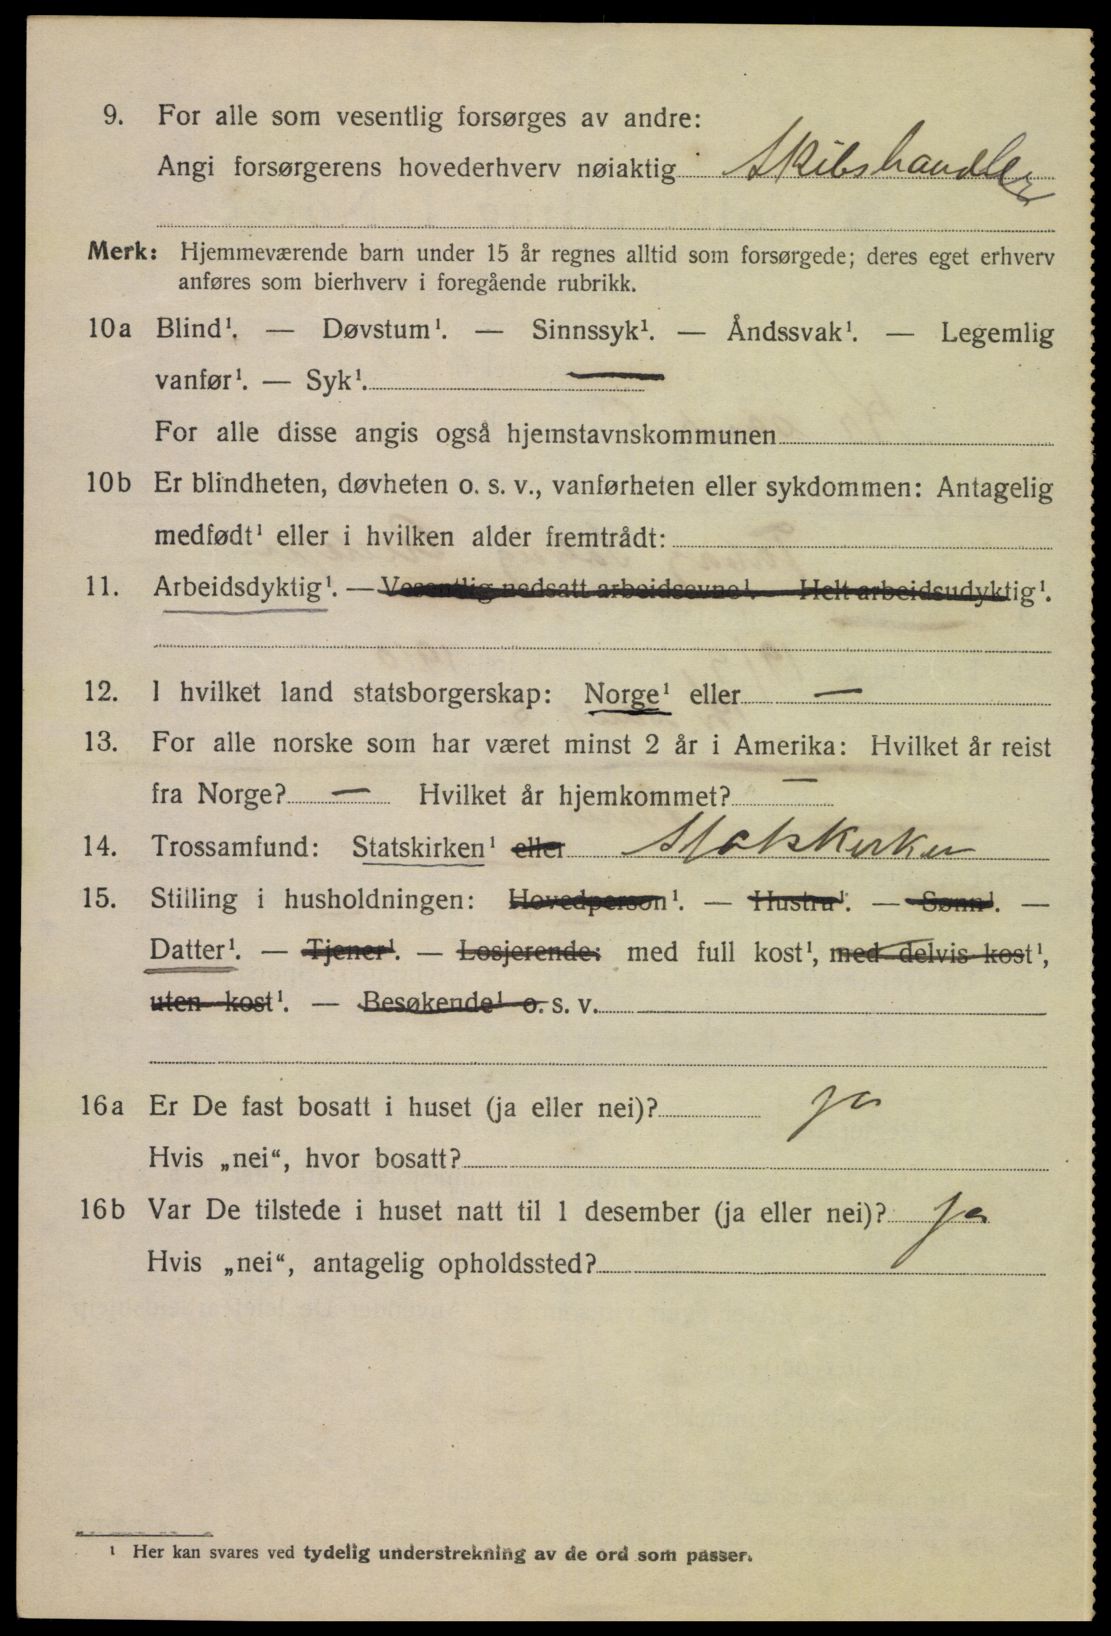 9. For alle som vesentlig forsørges av andre:
Angi forsørgerens hovederhverv nøiaktig Skibshandler
Merk: Hjemmeværende barn under 15 år regnes alltid som forsørgede; deres eget erhverv
anføres som bierhverv i foregående rubrikk.
10a Blind¹. — Døvstum¹. — Sinnssyk¹. — Åndssvak¹. — Legemlig
vanfør¹. — Syk¹. —
For alle disse angis også hjemstavnskommunen
10b Er blindheten, døvheten o. s. v., vanførheten eller sykdommen: Antagelig
medfødt¹ eller i hvilken alder fremtrådt:
11. Arbeidsdyktig¹. — Vesentlig nedsatt arbeidsevne¹. — Helt arbeidsudyktig¹.
12. I hvilket land statsborgerskap: Norge¹ eller —
13. For alle norske som har været minst 2 år i Amerika: Hvilket år reist
fra Norge? — Hvilket år hjemkommet? —
14. Trossamfund: Statskirken¹ eller Statskirken
15. Stilling i husholdningen: Hovedperson¹. — Hustru¹. — Sønn¹. —
Datter¹. — Tjener¹. — Losjerende: med full kost¹, med delvis kost¹,
uten kost¹. — Besøkende¹ o. s. v.
16a Er De fast bosatt i huset (ja eller nei)? ja
Hvis „nei“, hvor bosatt?
16b Var De tilstede i huset natt til 1 desember (ja eller nei)? ja
Hvis „nei“, antagelig opholdssted?
¹ Her kan svares ved tydelig understrekning av de ord som passer.